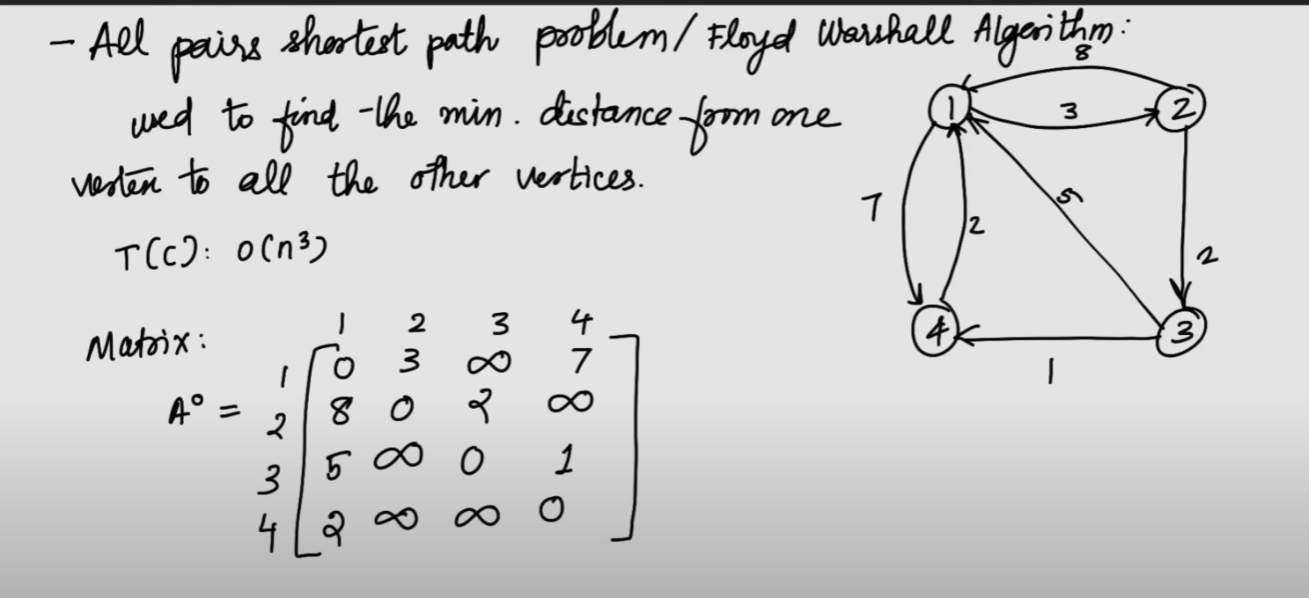 - All pairs shortest path problem/ Floyd Warshall Algorithm:
used to find the min. distance from one
vertex to all the other vertices.
T(C): O(n³)
Matrix:
1 2 3 4
1 0 3 ∞ 7
A⁰ =
2 8 0 2 ∞
3 5 ∞ 0 1
4 2 ∞ ∞ 0
8
1 3 2
7 2 5 2
4 3
1